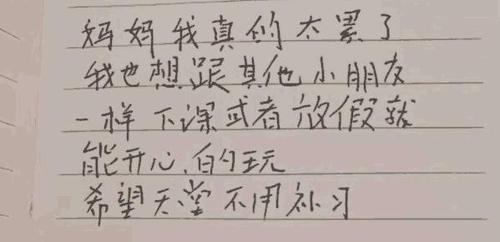 妈妈我真的太累了
我也想跟其他小朋友
一样下课或者放假就
能开心的玩
希望天堂不用补习